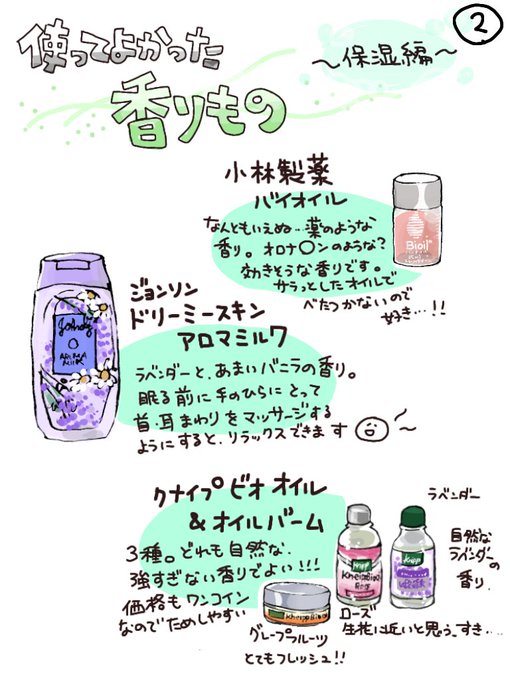 ②
使ってよかった
香りもの
～保湿編～
小林製薬
バイオイル
なんともいえぬ…薬のような
香り。オロナ〇ンのような?
効きそうな香りです。
サラっとしたオイルで
べたつかないので
好き…!!
Bioil
ジョンソン
ドリーミースキン
アロマミルク
ラベンダーと、あまいバニラの香り。
眠る前に手のひらにとって
首・耳まわりをマッサージする
ようにすると、リラックスできます
AROMA
MILK
クナイプビオ オイル
&オイルバーム
3種。どれも自然な、
強すぎない香りでよい!!!
価格もワンコイン
なのでためしやすい
ラベンダー
自然な
ラベンダー
の
香り
ローズ
生花に近いと思う、すき…
グレープフルーツ
とてもフレッシュ!!